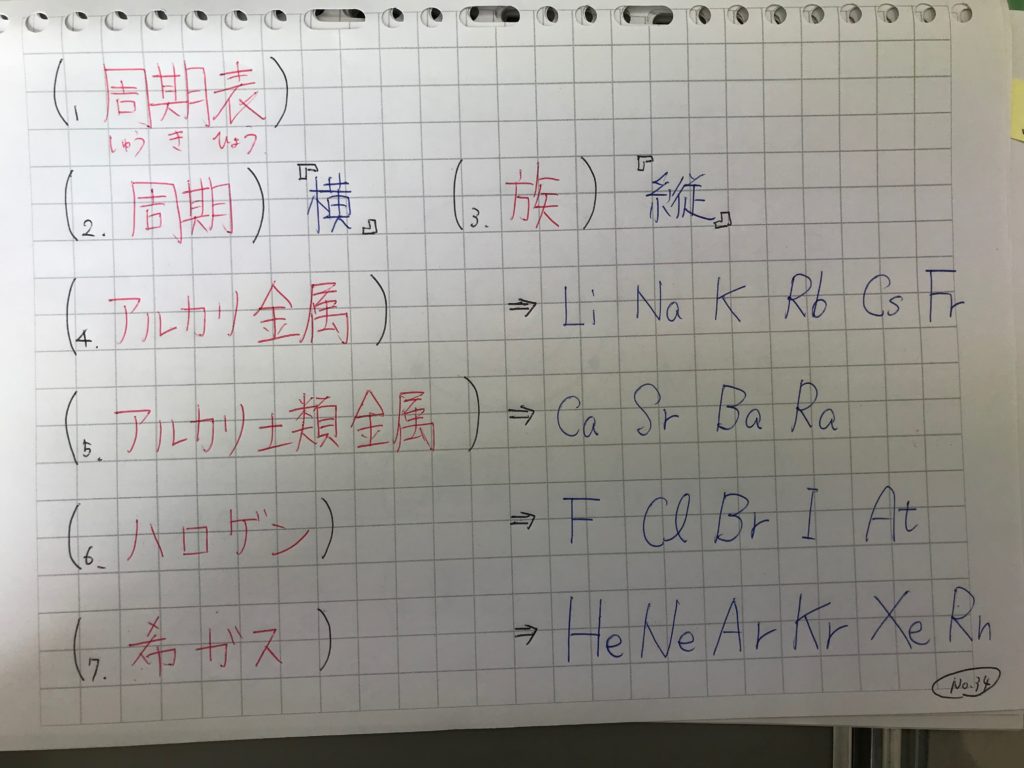 (1 周期表)
しゅう き ひょう
(2. 周期) 『横』 (3. 族) 『縦』
(4. アルカリ金属) ⇒ Li Na K Rb Cs Fr
(5. アルカリ土類金属) ⇒ Ca Sr Ba Ra
(6_ ハロゲン) ⇒ F Cl Br I At
(7. 希ガス) ⇒ He Ne Ar Kr Xe Rn
No.34